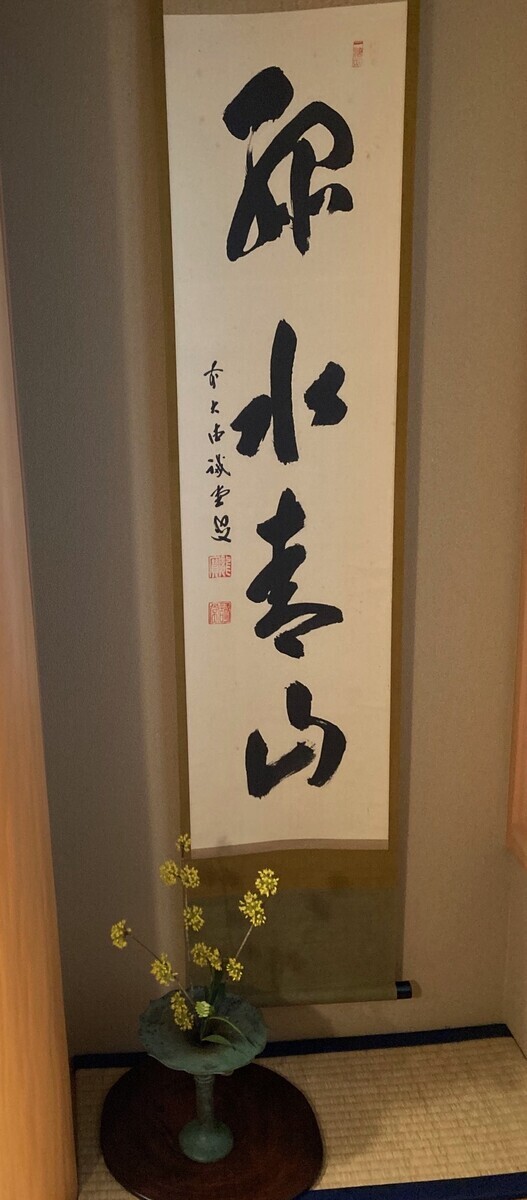 緑水青山
前大徳誠堂叟